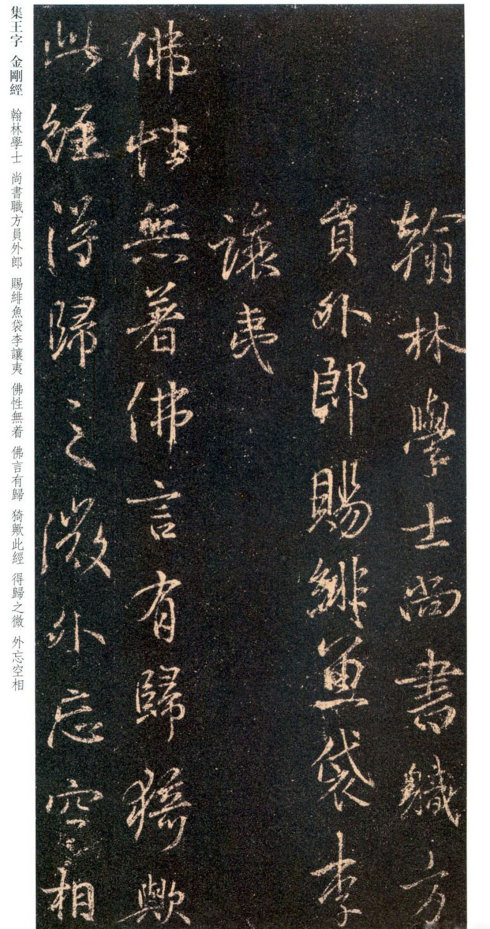 翰林學士尚書職方
貟外郎賜緋魚袋李
讓夷
佛性無著佛言有歸猗歟
此經得歸之微外忘空相
集王字 金剛經 翰林學士 尚書職方員外郎 賜緋魚袋李讓夷 佛性無着 佛言有歸 猗歟此經 得歸之微 外忘空相